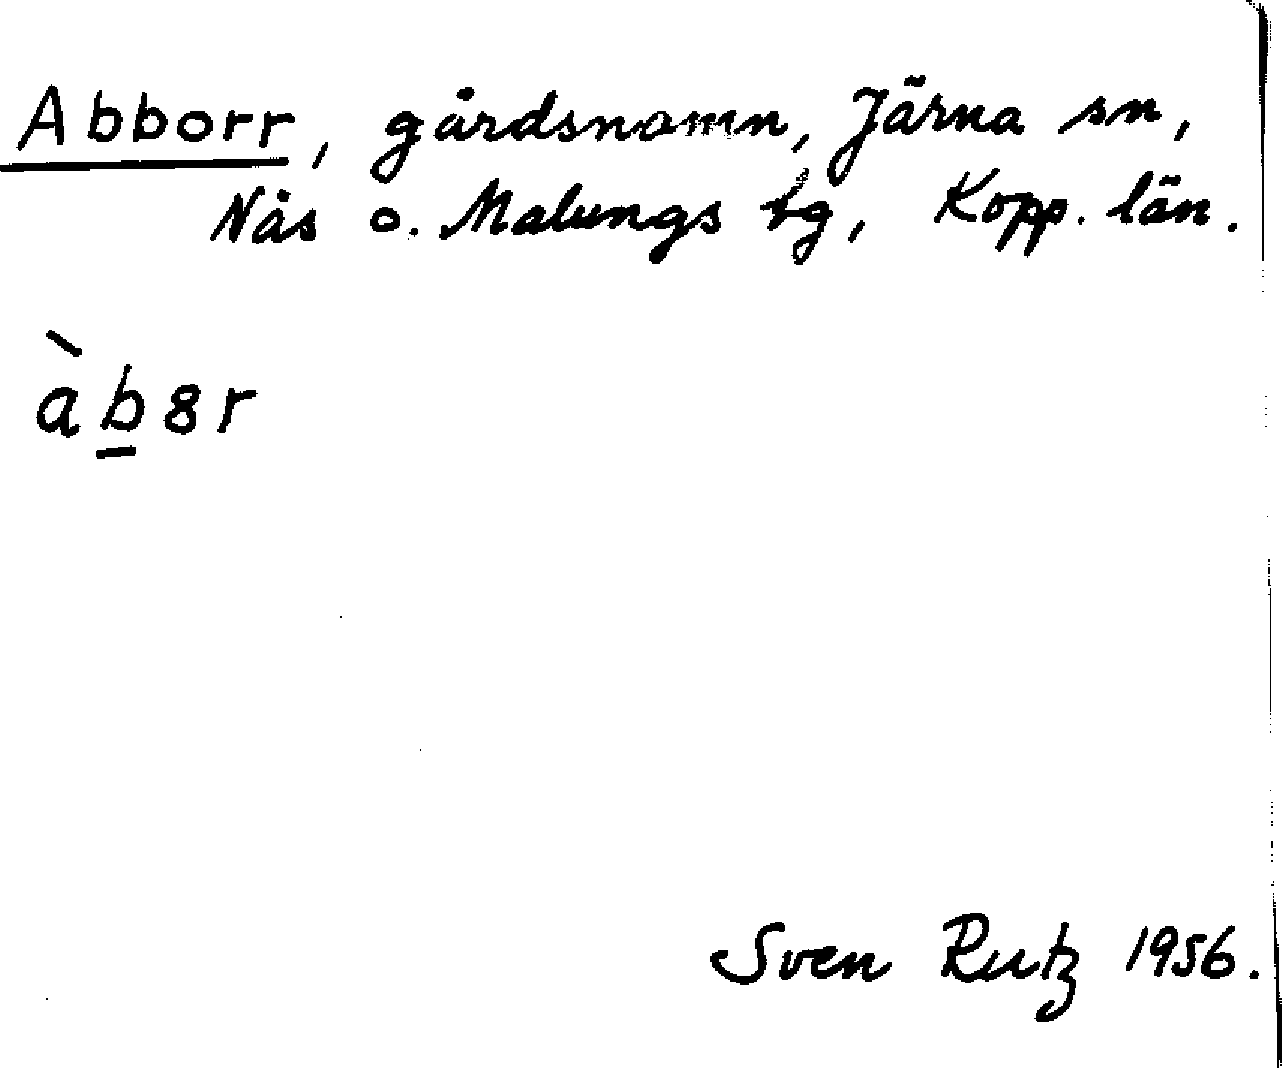 Abborr, gårdsnamn, Järna sn,
Nås o. Malungs tg, Kopp. län.
àb̲8r
Sven Rutz 1956.